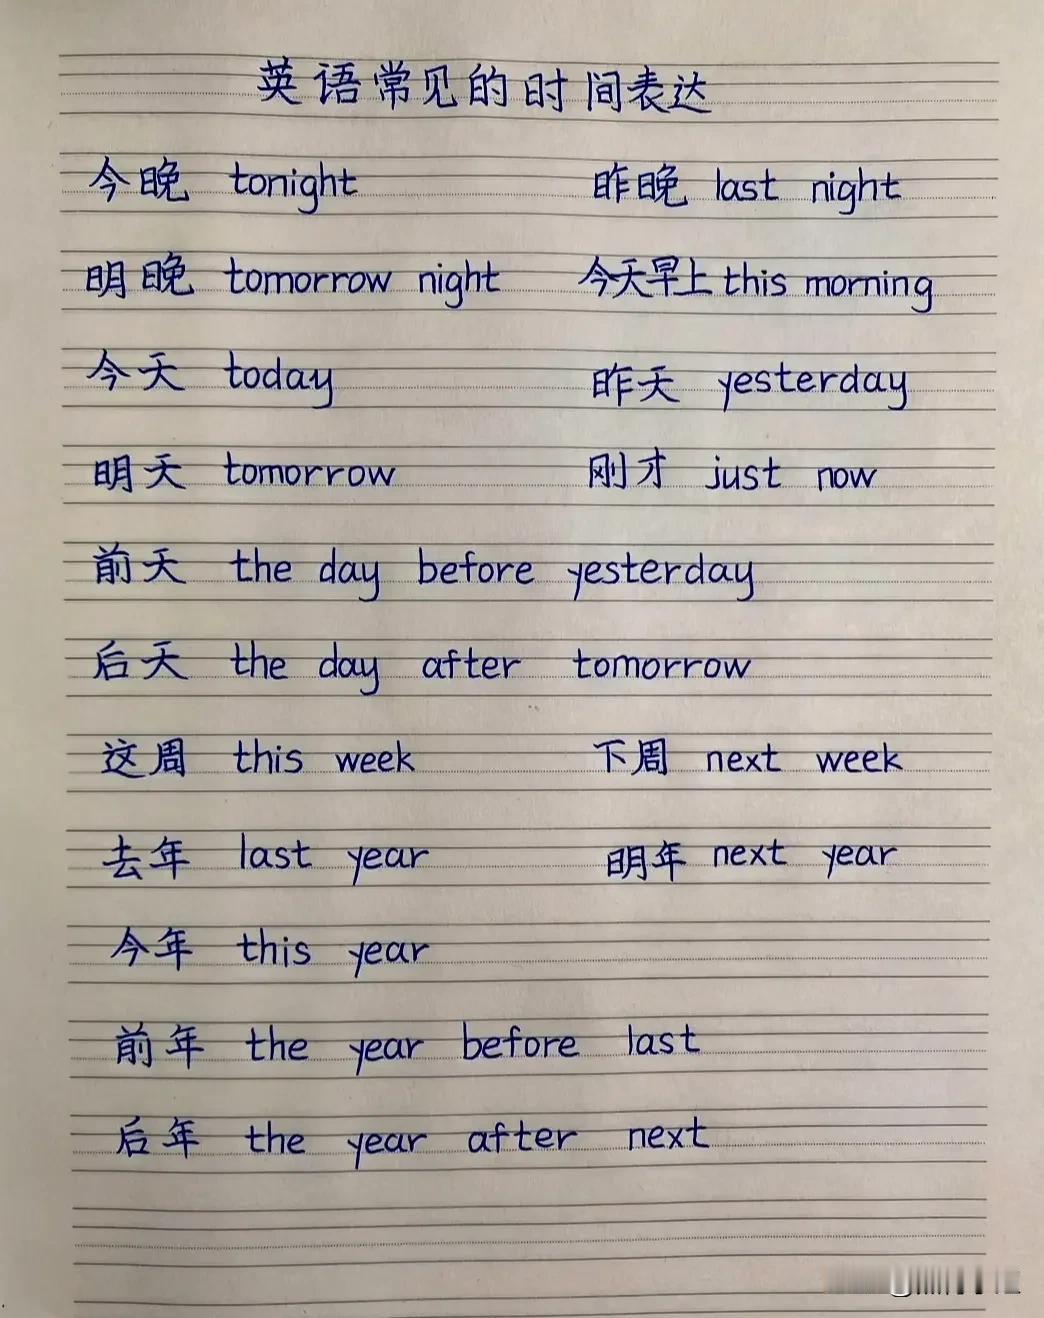 英语常见的时间表达
今晚 tonight 昨晚 last night
明晚 tomorrow night 今天早上 this morning
今天 today 昨天 yesterday
明天 tomorrow 刚才 just now
前天 the day before yesterday
后天 the day after tomorrow
这周 this week 下周 next week
去年 last year 明年 next year
今年 this year
前年 the year before last
后年 the year after next